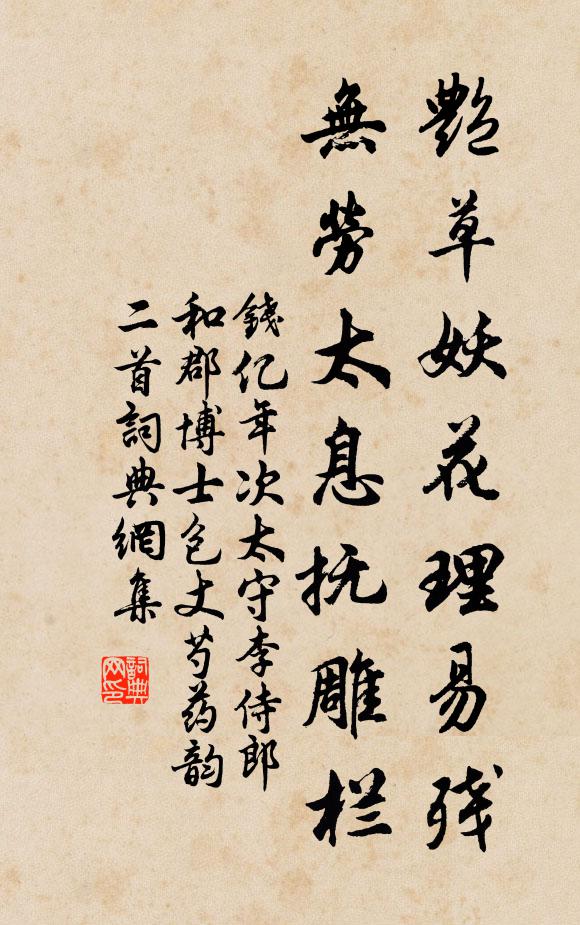 艷草妖花理易残
無勞太息抚雕栏
錢亿年次太守李侍郎
和郡博士包丈芍药韵
二首詞典網集
詞典网印